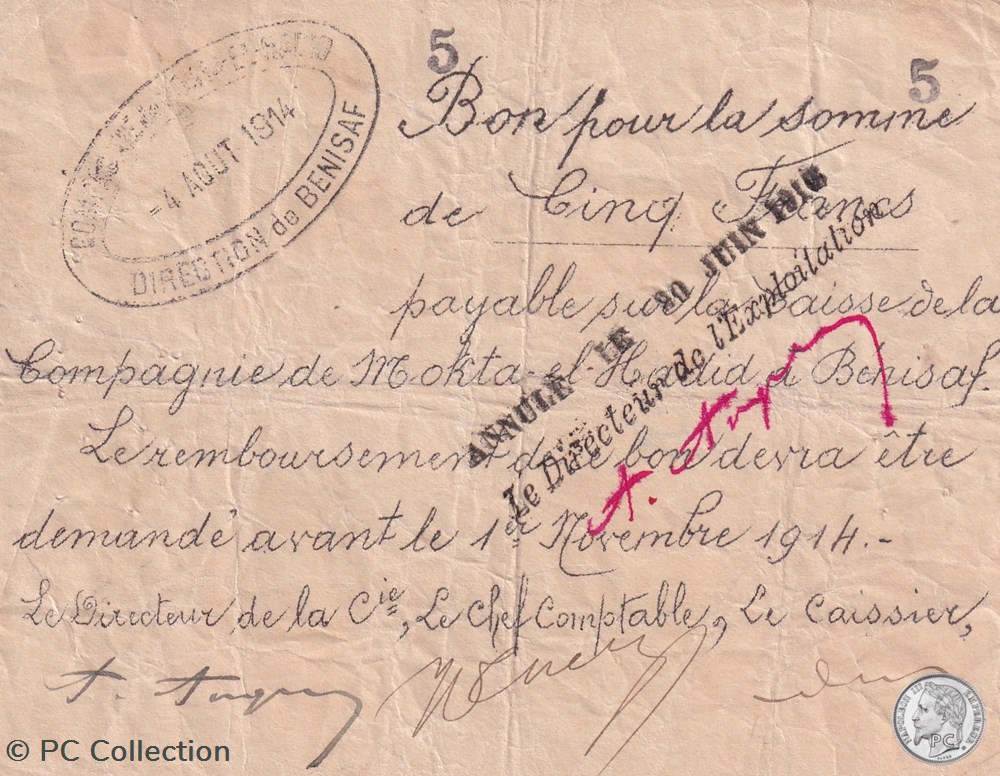 5
5
- 4 AOUT 1914
DIRECTION de BENISAF
Bon pour la somme
de Cinq Francs
payable sur la Caisse de la
Compagnie de Mokta-el-Hadid à Bénisaf.
Le remboursement de ce bon devra être
demandé avant le 1er Novembre 1914.-
ANNULÉ LE JUIN
Le Directeur de l'Exploitation
Le Directeur de la Cie, Le Chef Comptable, Le Caissier,
NAPOLEON III EMPEREUR
PC
© PC Collection